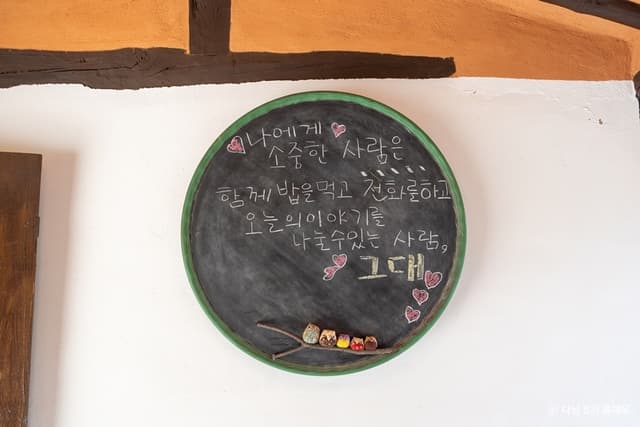 나에게
소중한 사람은
함께 밥을먹고 전화를하고
오늘의이야기를
나눌수있는 사람,
그대